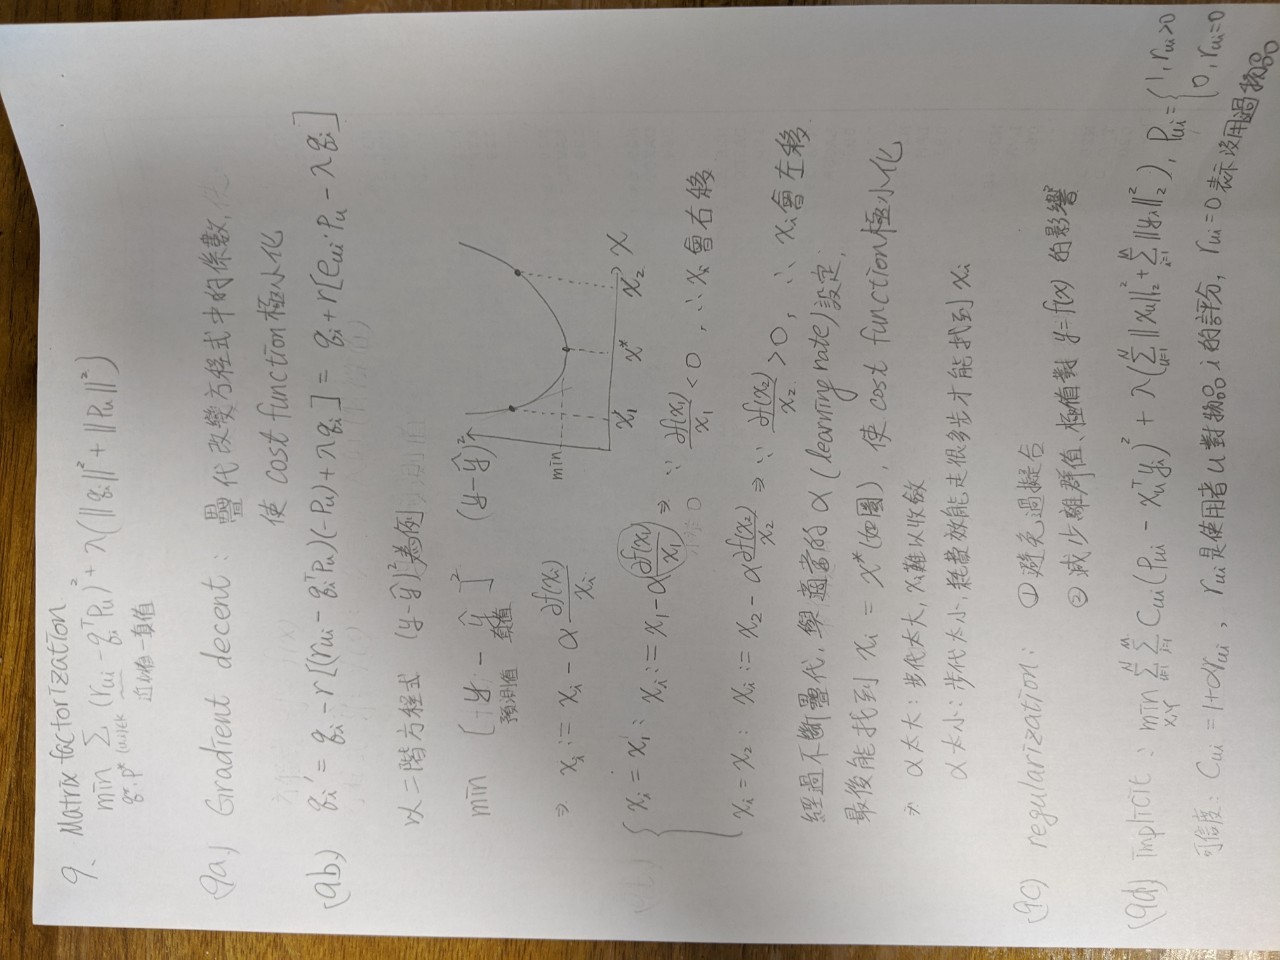 9. Matrix factorization
min Σ (rui - qiᵀPu)² + λ(‖qi‖² + ‖Pu‖²)
q*,p* (u,i)∈k
近似值-真值
(9a) Gradient decent: 疊代改變方程式中的係數,
使 cost function 極小化
(9b) qi' = qi - r[(rui - qiᵀPu)(-Pu) + λqi] = qi + r[eui·Pu - λqi]
以二階方程式 (y-ŷ)²為例
min [y - ŷ]² (y-ŷ)²
預測值 真值
min
⇒ xi := xi - α ∂f(xi)/xi
x₁ x* x₂ x
xi = x₁: xi := x₁ - α ∂f(x₁)/x₁ ⇒ ∵ ∂f(x₁)/x₁ < 0, ∴ xi 會右移
小於 0
xi = x₂: xi := x₂ - α ∂f(x₂)/x₂ ⇒ ∵ ∂f(x₂)/x₂ > 0, ∴ xi 會左移
經過不斷疊代, 與適當的 α (learning rate) 設定,
最後能找到 xi = x* (如圖), 使 cost function 極小化
※ α 太大: 步代太大, xi難以收斂
α 太小: 步代太小, 耗費效能走很多步才能找到 xi
(9c) regularization: ① 避免過擬合
② 減少離群值、極值對 y=f(x) 的影響
(9d) implicit: min x,Y Σᴺu=1 Σᴹi=1 Cui(Pui - xuᵀyi)² + λ(Σᴺu=1 ‖xu‖₂² + Σᴹi=1 ‖yi‖₂²), Pui = {1, rui>0
0, rui=0
可信度: Cui = 1+αrui, rui是使用者 u 對物品 i 的評分, rui=0 表示沒用過物品